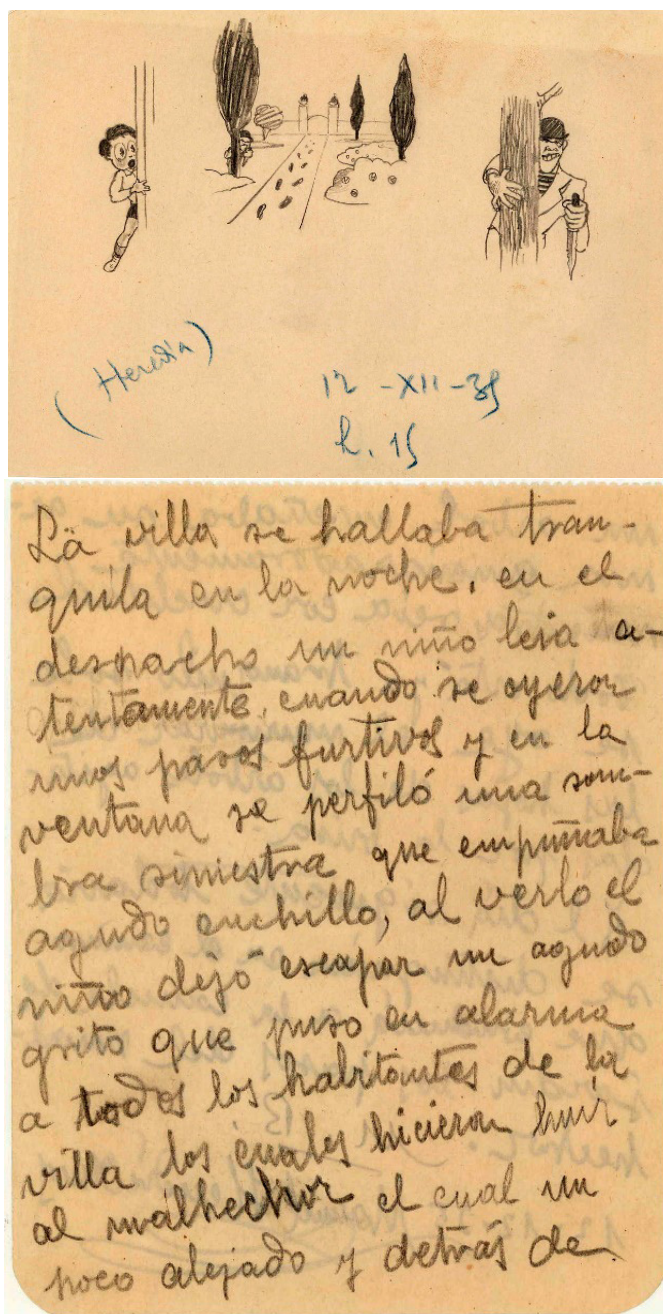 (Heredia)
12-XII-35
h. 15
La villa se hallaba tran-
quila en la noche, en el
despacho un niño leia a-
tentamente, cuando se oyeron
unos pasos furtivos y en la
ventana se perfiló una som-
bra siniestra que empuñaba
agudo cuchillo, al verlo el
niño dejó escapar un agudo
grito que puso en alarma
a todos los habitantes de la
villa los cuales hicieron huir
al malhechor el cual un
poco alejado y detrás de